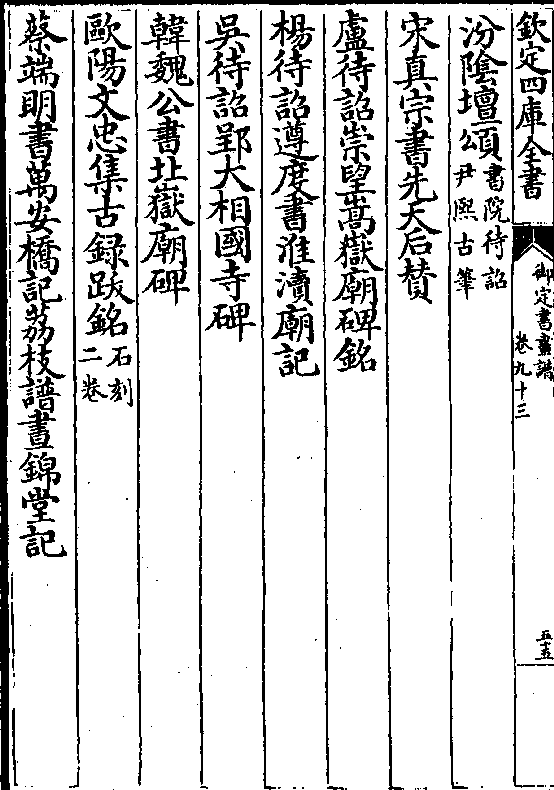 欽定四庫全書
御定書畫譜
卷九十三
五十五
汾隂壇頌書院待詔
尹熙古筆
宋真宗書先天后賛
盧待詔崇望嵩嶽廟碑銘
楊待詔遵度書淮瀆廟記
吳待詔郢大相國寺碑
韓魏公書北嶽廟碑
歐陽文忠集古録跋銘石刻
二卷
蔡端明書萬安橋記荔枝譜晝錦堂記